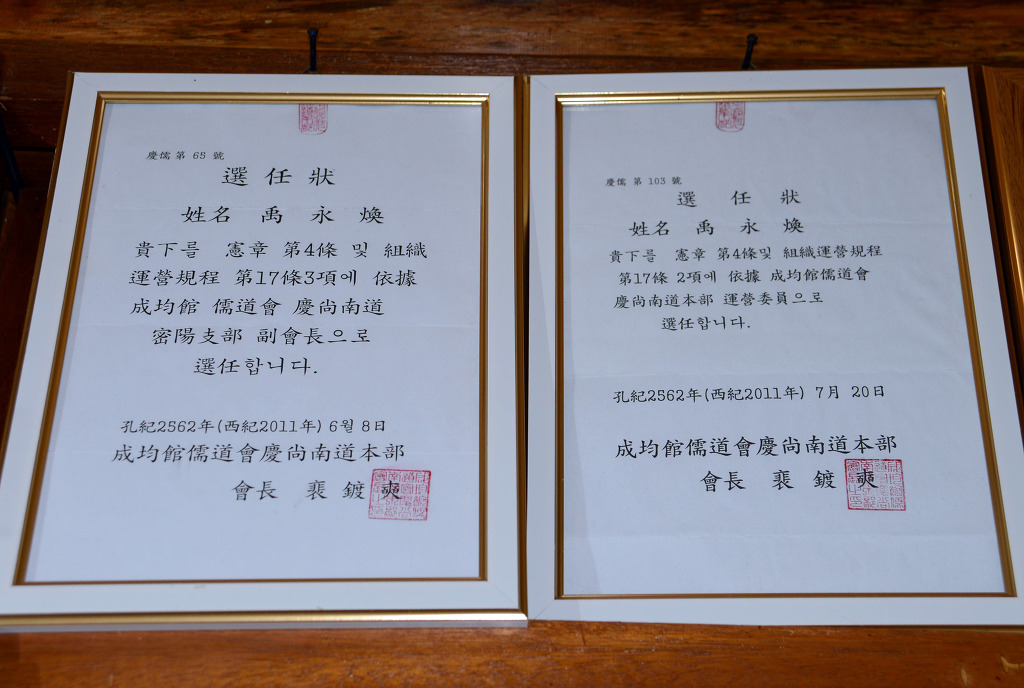 慶儒 第 65 號
選 任 狀
姓名 禹 永 煥
貴下를 憲章 第4條 및 組織
運營規程 第17條3項에 依據
成均館 儒道會 慶尚南道
密陽支部 副會長으로
選任합니다.
孔紀2562年(西紀2011年) 6월 8日
成均館儒道會慶尚南道本部
會長 裵 鍍 奭
慶儒 第 103 號
選 任 狀
姓名 禹 永 煥
貴下를 憲章 第4條및 組織運營規程
第17條 2項에 依據 成均館儒道會
慶尚南道本部 運營委員으로
選任합니다.
孔紀2562年(西紀2011年) 7月 20日
成均館儒道會慶尚南道本部
會長 裵 鍍 奭